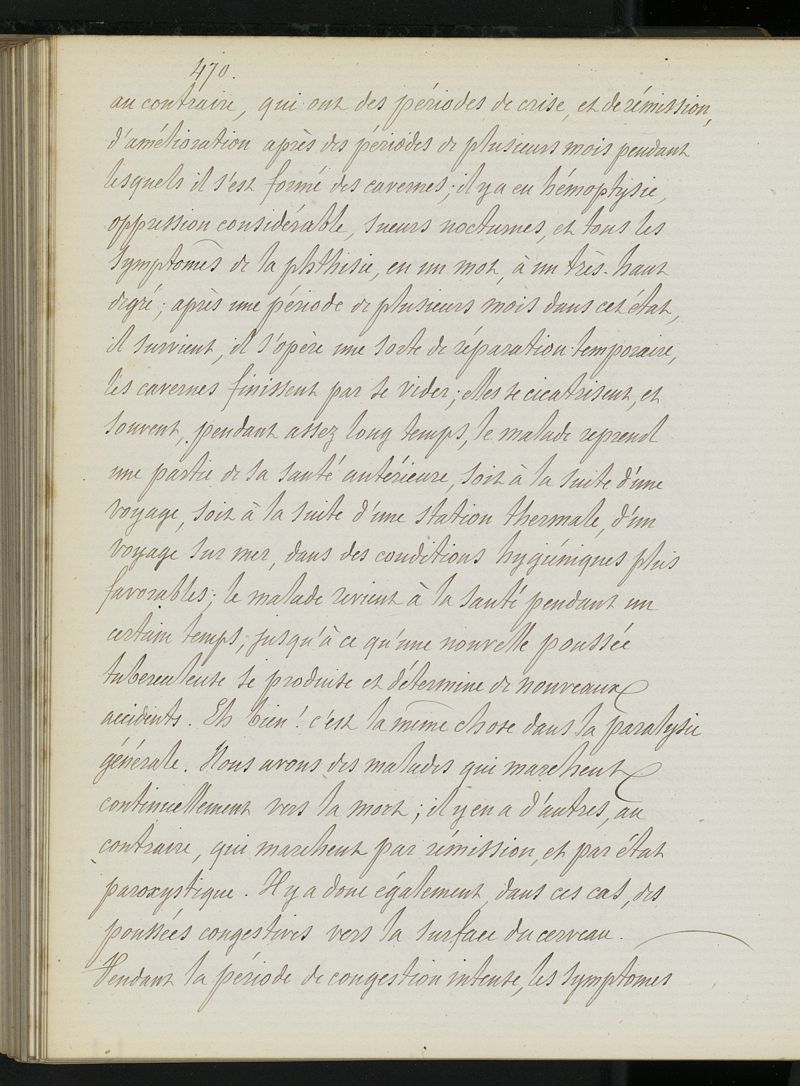 470.
au contraire, qui ont des périodes de crise, et de rémission,
d'amélioration après des périodes de plusieurs mois pendant
lesquels il s'est formé des cavernes; il y a eu hémoptysie,
oppression considérable, sueurs nocturnes, et tous les
symptomes de la phthisie, en un mot, à un très-haut
degré; après une période de plusieurs mois dans cet état,
il survient, il s'opère une sorte de réparation temporaire,
les cavernes finissent par se vider; elles se cicatrisent, et
souvent, pendant assez long temps, le malade reprend
une partie de sa santé antérieure, soit à la suite d'une
voyage, soit à la suite d'une station thermale, d'un
voyage sur mer, dans des conditions hygiéniques plus
favorables; le malade revient à la santé pendant un
certain temps, jusqu'à ce qu'une nouvelle poussée
tuberculeuse se produise et détermine de nouveaux
accidents. Eh bien! c'est la même chose dans la paralysie
générale. Nous avons des malades qui marchent
continuellement vers la mort; il y en a d'autres, au
contraire, qui marchent par rémission, et par état
paroxystique. Il y a donc également, dans ces cas, des
poussées congestives vers la surface du cerveau.
Pendant la période de congestion intense, les symptomes